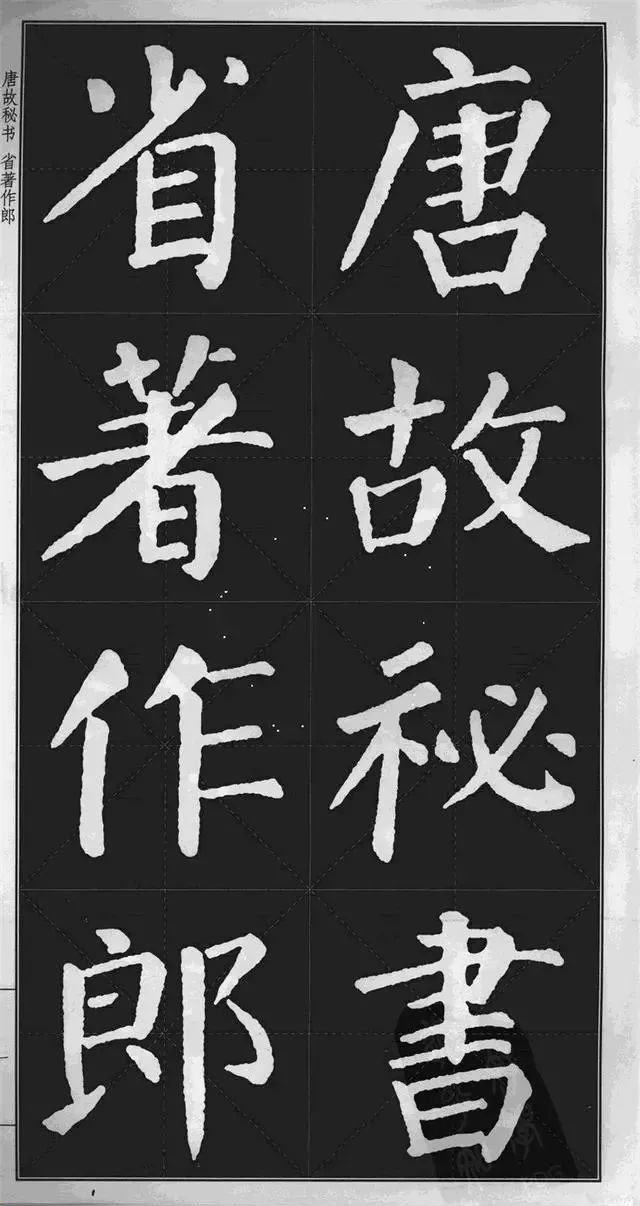 唐故祕書
省著作郎
唐故秘书 省著作郎